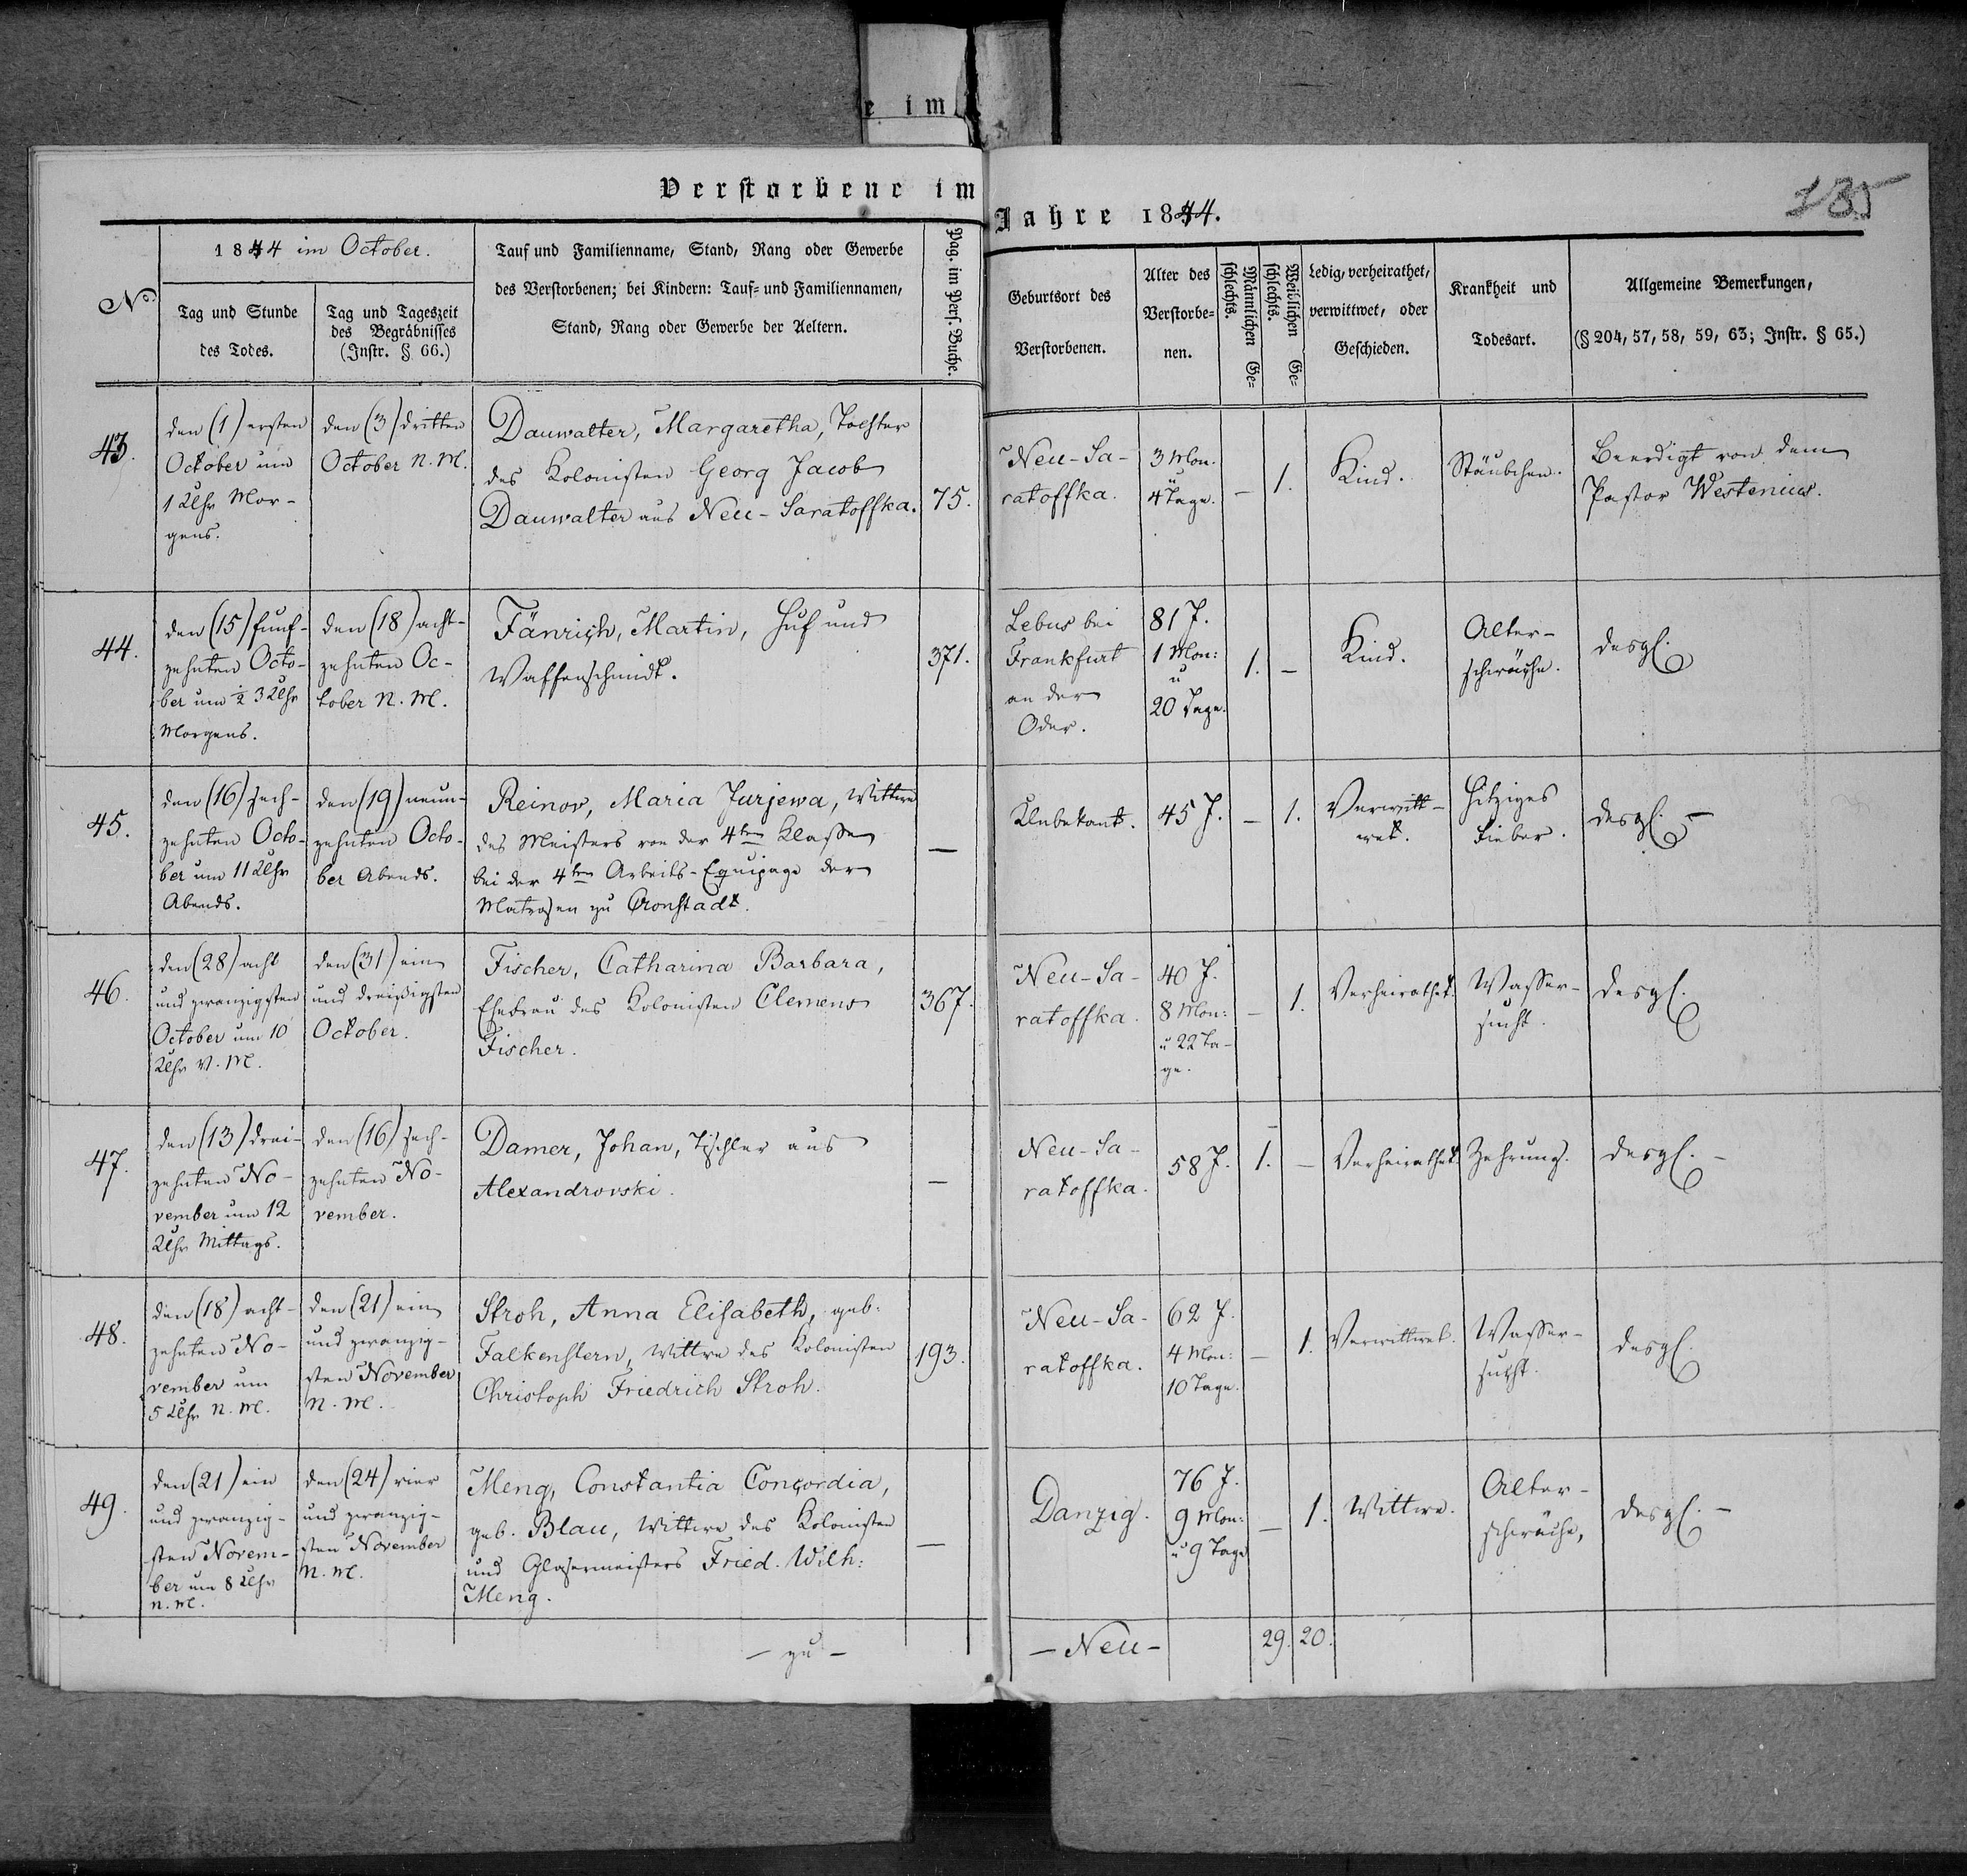 e im
Verstorbene im
Jahre 1844.
135
No
1844 im October.
Tag und Stunde
des Todes.
Tag und Tageszeit
des Begräbnisses
(Instr. § 66.)
Tauf und Familienname, Stand, Rang oder Gewerbe
des Verstorbenen; bei Kindern: Tauf- und Familiennamen,
Stand, Rang oder Gewerbe der Aeltern.
Pag. im Pers. Buche.
Geburtsort des
Verstorbenen.
Alter des
Verstorbe-
nen.
Männlichen Ge-
schlechts.
Weiblichen Ge-
schlechts.
Ledig, verheirathet,
verwittwet, oder
Geschieden.
Krankheit und
Todesart.
Allgemeine Bemerkungen,
(§ 204, 57, 58, 59, 63; Instr. § 65.)
43.
den (1) ersten
October um
1 Uhr Mor-
gens.
den (3) dritten
October N. M.
Dauwalter, Margaretha, Tochter
des Kolonisten Georg Jacob
Dauwalter aus Neu-Saratoffka.
75.
Neu-Sa-
ratoffka.
3 Mon.
u
4 Tage.
—
1.
Kind.
Stäubchen.
Beerdigt von dem
Pastor Westenius.
44.
den (15) funf-
zehnten Octo-
ber um ½ 3 Uhr
Morgens.
den (18) acht-
zehnten Oc-
tober N. M.
Fänrich, Martin, Huf und
Waffenschmidt.
371.
Lebus bei
Frankfurt
an der
Oder.
81 J.
1 Mon:
u
20 Tage.
1.
—
Kind.
Alter-
schwäche.
desgl.
45.
den (16) sech-
zehnten Octo-
ber um 11 Uhr
Abends.
den (19) neun-
zehnten Octo-
ber Abends.
Reinov, Maria Jurjewa, Wittwe
des Meisters von der 4ten Klasse
bei der 4ten Arbeits-Equipage der
Matrosen zu Cronstadt.
—
Unbekant.
45 J.
—
1.
Verwitt-
wet.
Hitziges
Fieber.
desgl. —
46.
den (28) acht
und zwanzigsten
October um 10
Uhr V. M.
den (31) ein
und dreißigsten
October.
Fischer, Catharina Barbara,
Ehefrau des Kolonisten Clemens
Fischer.
367.
Neu-Sa-
ratoffka.
40 J.
8 Mon:
u 22 Ta-
ge.
—
1.
Verheirathet.
Wasser-
sucht.
desgl.
47.
den (13) drei-
zehnten No-
vember um 12
Uhr Mittags.
den (16) sech-
zehnten No-
vember.
Damer, Johan, Tischler aus
Alexandrovski.
—
Neu-Sa-
ratoffka.
58 J.
1.
—
Verheirathet.
Zehrung.
desgl. —
48.
den (18) acht-
zehnten No-
vember um
5 Uhr N. M.
den (21) ein
und zwanzig-
sten November
N. M.
Stroh, Anna Elisabeth, geb:
Falkenstern, Wittwe des Kolonisten
Christoph Friedrich Stroh.
193.
Neu-Sa-
ratoffka.
62 J.
4 Mon:
10 Tage.
—
1.
Verwittwet.
Wasser-
sucht.
desgl.
49.
den (21) ein
und zwanzig-
sten Novem-
ber um 8 Uhr
N. M.
den (24) vier
und zwanzig-
sten November
N. M.
Meng, Constantia Concordia,
geb. Blau, Wittwe des Kolonisten
und Glasermeisters Fried. Wilh:
Meng.
—
Danzig.
76 J.
9 Mon:
u 9 Tage
—
1.
Wittwe.
Alter-
schwäche,
desgl. —
— zu —
— Neu —
29.
20.